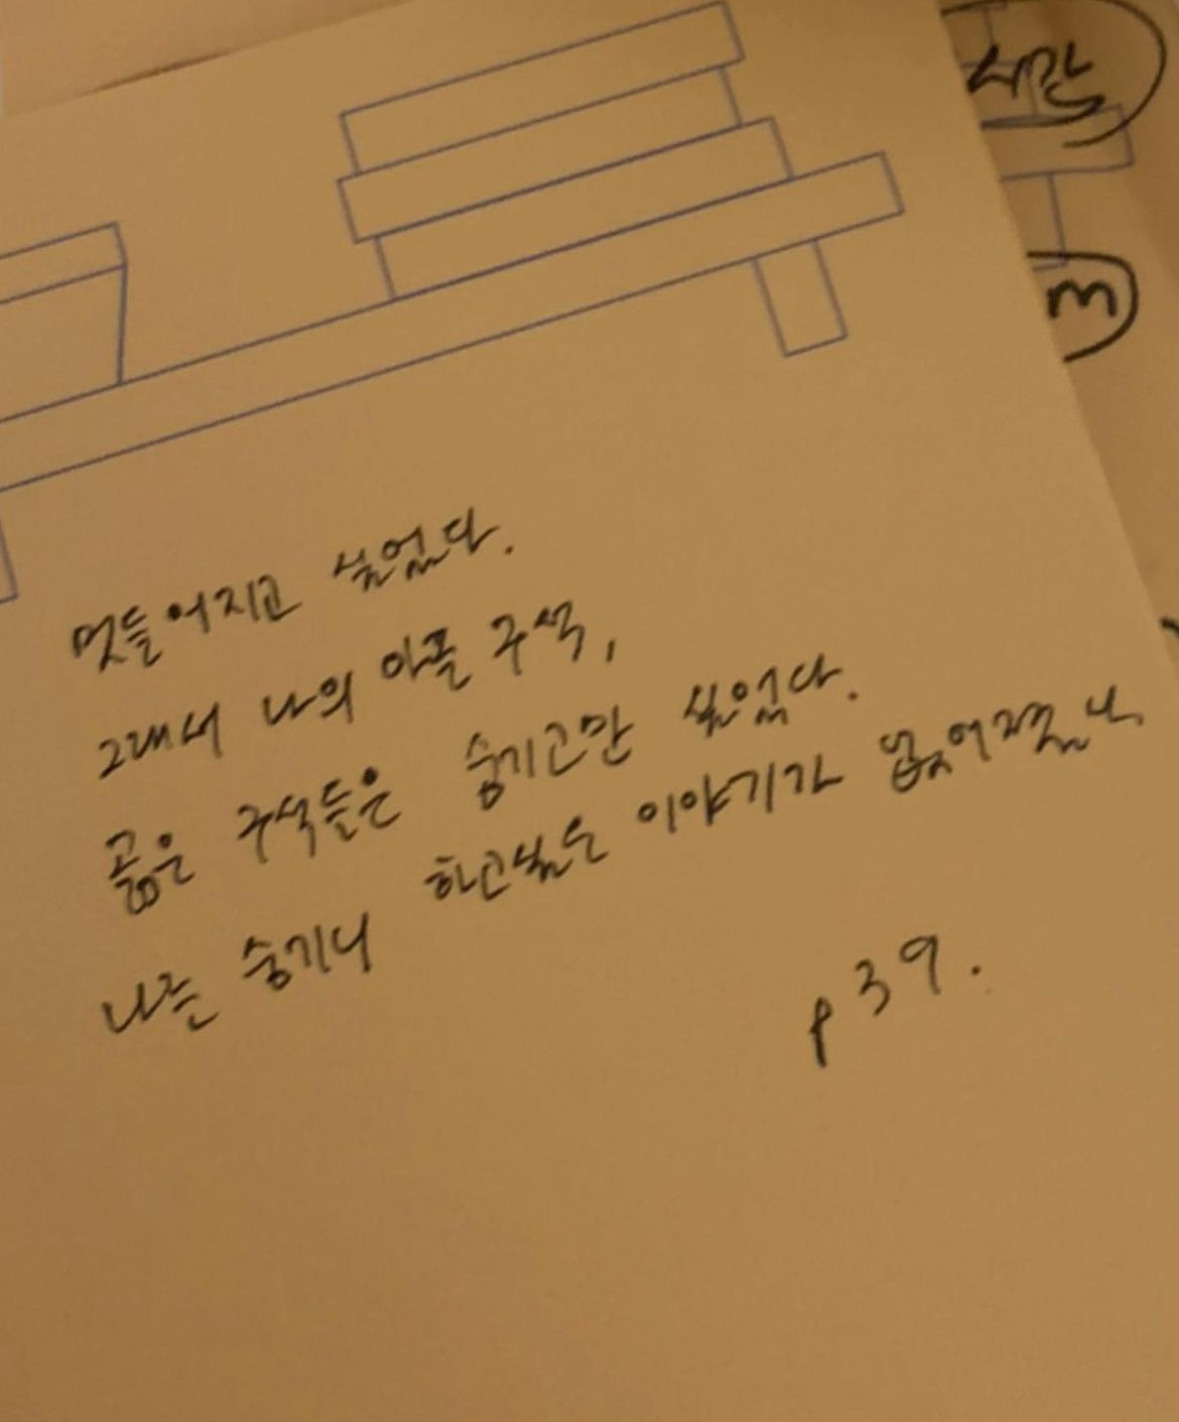 시간
m
멋들어지고 싶었다.
그래서 나의 아픈 구석,
곪은 구석들은 숨기고만 싶었다.
나를 숨기니 하고싶은 이야기가 없어졌나
p 39.